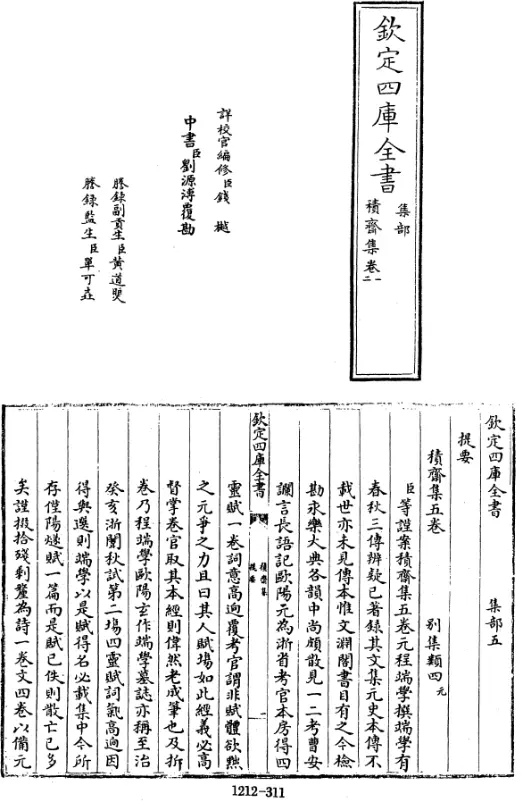 欽定四庫全書
集部
積齋集卷一
二
詳校官編修臣錢樾
中書臣劉源溥覆勘
謄錄副貢生臣黃道煚
謄錄監生臣單可垚
欽定四庫全書 集部五
提要
積齋集五卷 別集類四元
臣等謹案積齋集五卷元程端學撰端學有
春秋三傳辨疑已著錄其文集元史本傳不
載世亦未見傳本惟文淵閣書目有之今檢
勘永樂大典各韻中尚頗散見一二考曹安
讕言長語記歐陽元為浙省考官本房得四
欽定四庫全書
積齋集
提要
一
靈賦一卷詞意高逈覆考官謂非賦體欲黜
之元爭之力且曰其人賦場如此經義必高
督掌卷官取其本經則偉然老成筆也及拆
卷乃程端學歐陽玄作端學墓誌亦稱至治
癸亥浙闈秋試第二場四靈賦詞氣高逈因
得與選則端學以是賦得名必載集中今所
存僅陽燧賦一篇而是賦已佚則散亡已多
矣謹掇拾殘剩釐為詩一卷文四卷以備元
1212-311